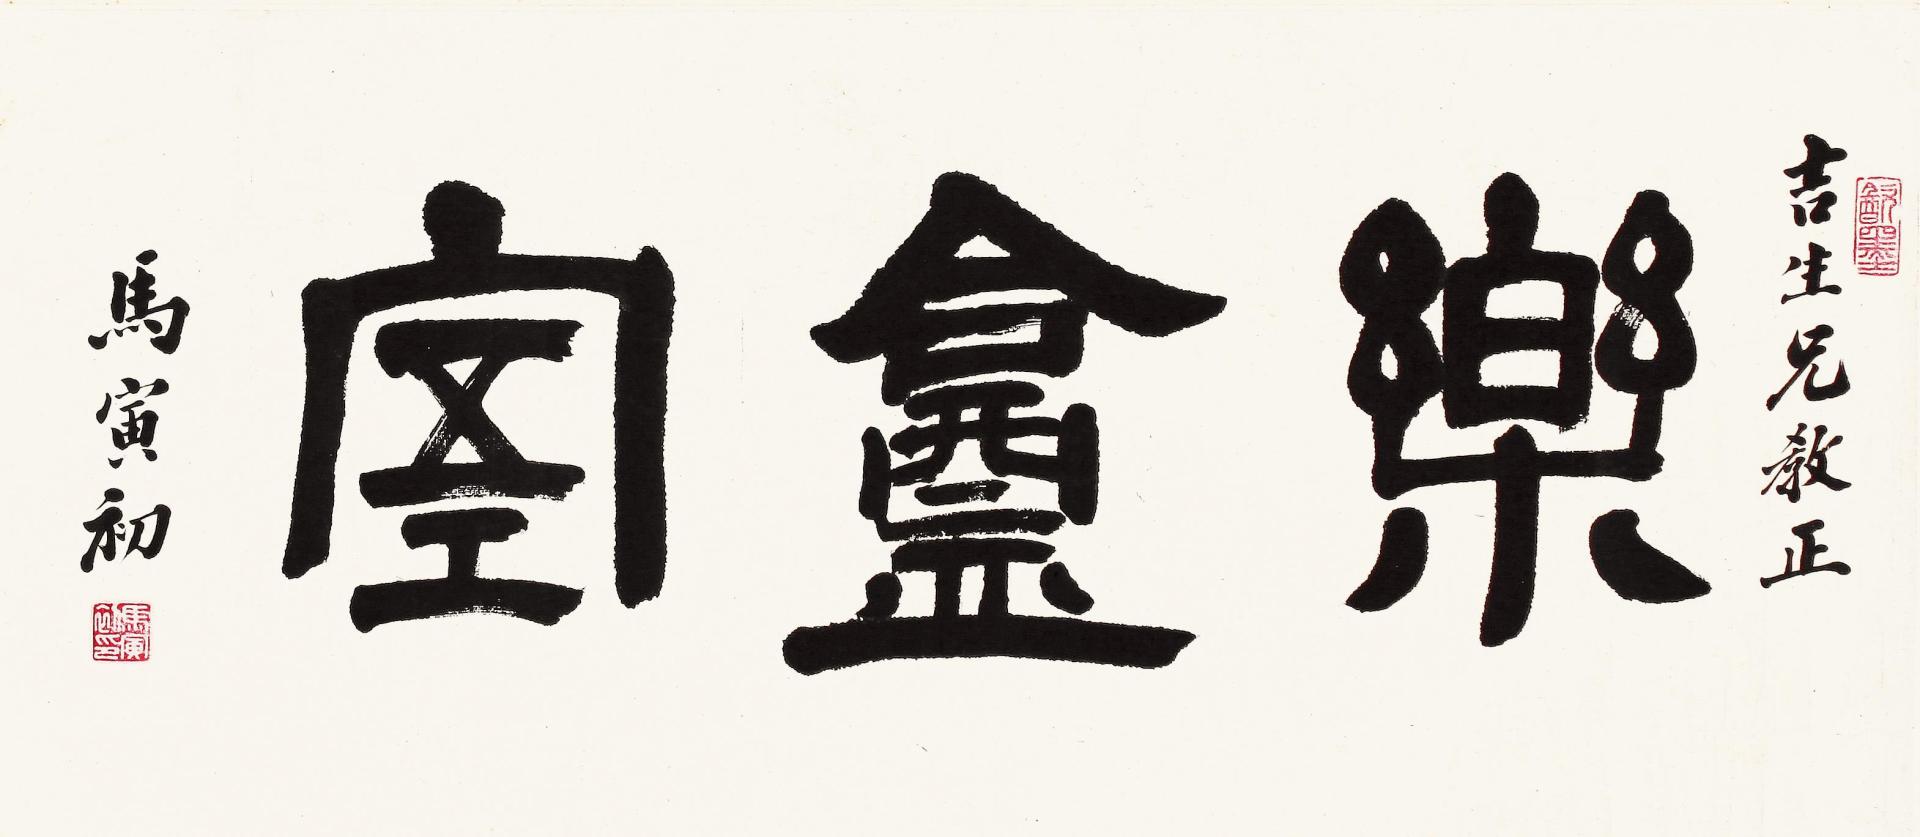 吉生兄教正
樂盦室
馬寅初
馬寅初印